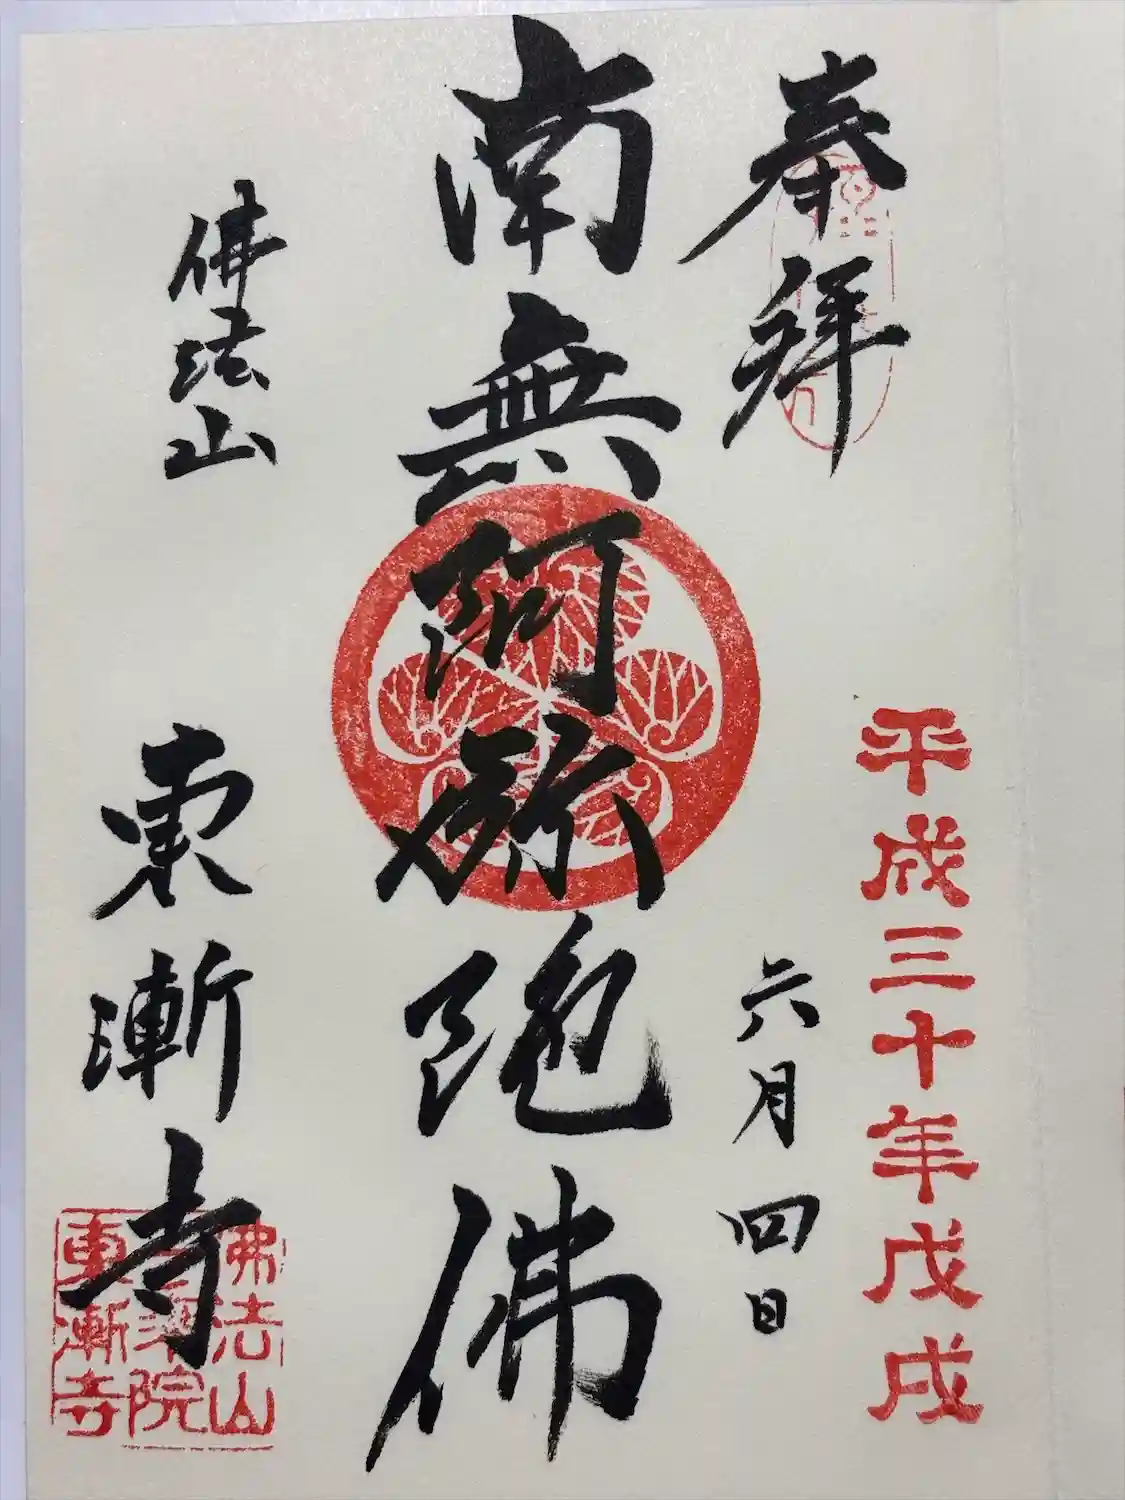 平成三十年戊戌
奉拝
六月四日
南無阿弥陀佛
佛法山
東漸寺
佛法山
院
東漸寺